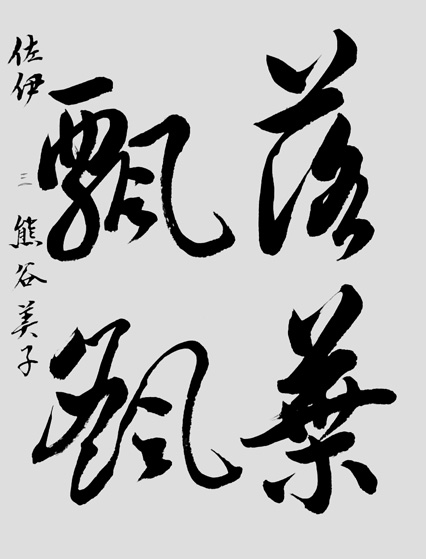 落葉
飄颻
佐伊 三 熊谷美子